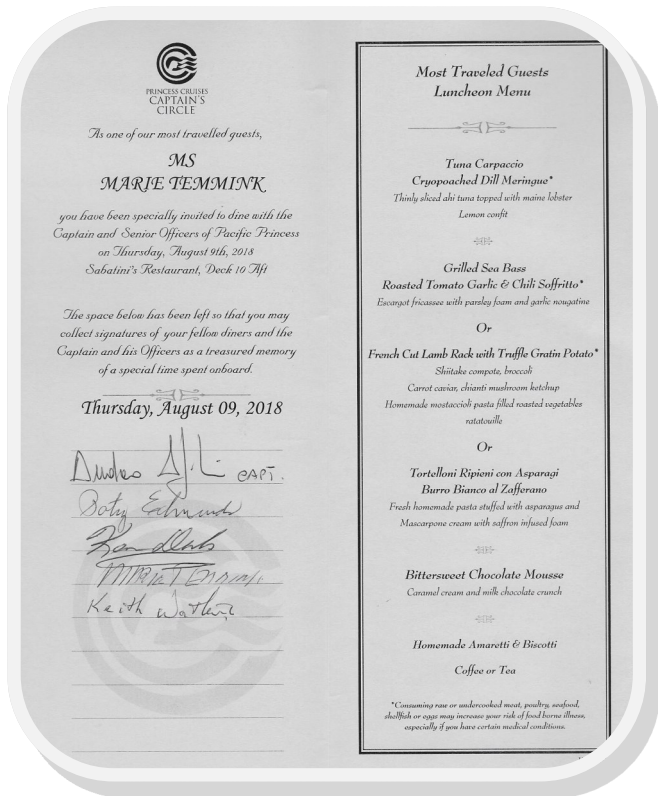 PRINCESS CRUISES
CAPTAIN'S
CIRCLE
As one of our most travelled guests,
MS
MARIE TEMMINK
you have been specially invited to dine with the
Captain and Senior Officers of Pacific Princess
on Thursday, August 9th, 2018
Sabatini's Restaurant, Deck 10 Aft
The space below has been left so that you may
collect signatures of your fellow diners and the
Captain and his Officers as a treasured memory
of a special time spent onboard.
Thursday, August 09, 2018
CAPT.
Keith
Most Traveled Guests
Luncheon Menu
Tuna Carpaccio
Cryopoached Dill Meringue*
Thinly sliced ahi tuna topped with maine lobster
Lemon confit
Grilled Sea Bass
Roasted Tomato Garlic & Chili Soffritto*
Escargot fricassee with parsley foam and garlic nougatine
Or
French Cut Lamb Rack with Truffle Gratin Potato*
Shiitake compote, broccoli
Carrot caviar, chianti mushroom ketchup
Homemade mostaccioli pasta filled roasted vegetables
ratatouille
Or
Tortelloni Ripieni con Asparagi
Burro Bianco al Zafferano
Fresh homemade pasta stuffed with asparagus and
Mascarpone cream with saffron infused foam
Bittersweet Chocolate Mousse
Caramel cream and milk chocolate crunch
Homemade Amaretti & Biscotti
Coffee or Tea
*Consuming raw or undercooked meat, poultry, seafood,
shellfish or eggs may increase your risk of food borne illness,
especially if you have certain medical conditions.